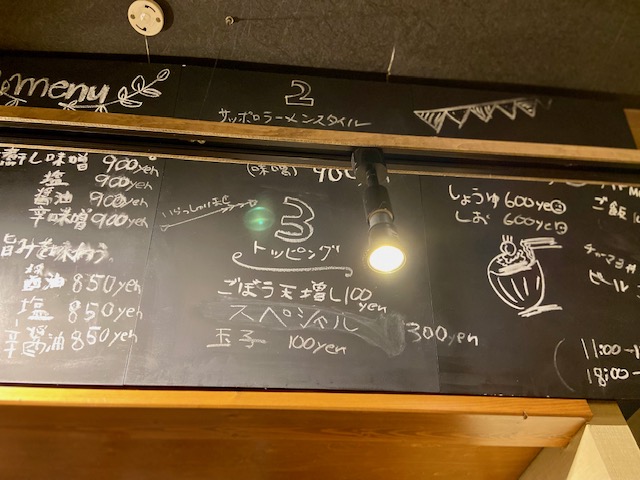 menu
2
サッポロラーメンスタイル
蒸し味噌 900yen
塩 900yen
醤油 900yen
辛味噌 900yen
旨みを味わう
醤油 850yen
塩 850yen
辛醤油 850yen
(味噌) 900
3
トッピング
ごぼう天増し100yen
スペシャル 300yen
玉子 100yen
しょうゆ 600yen
しお 600yen
ご飯
ビール
11:00-
18:00-